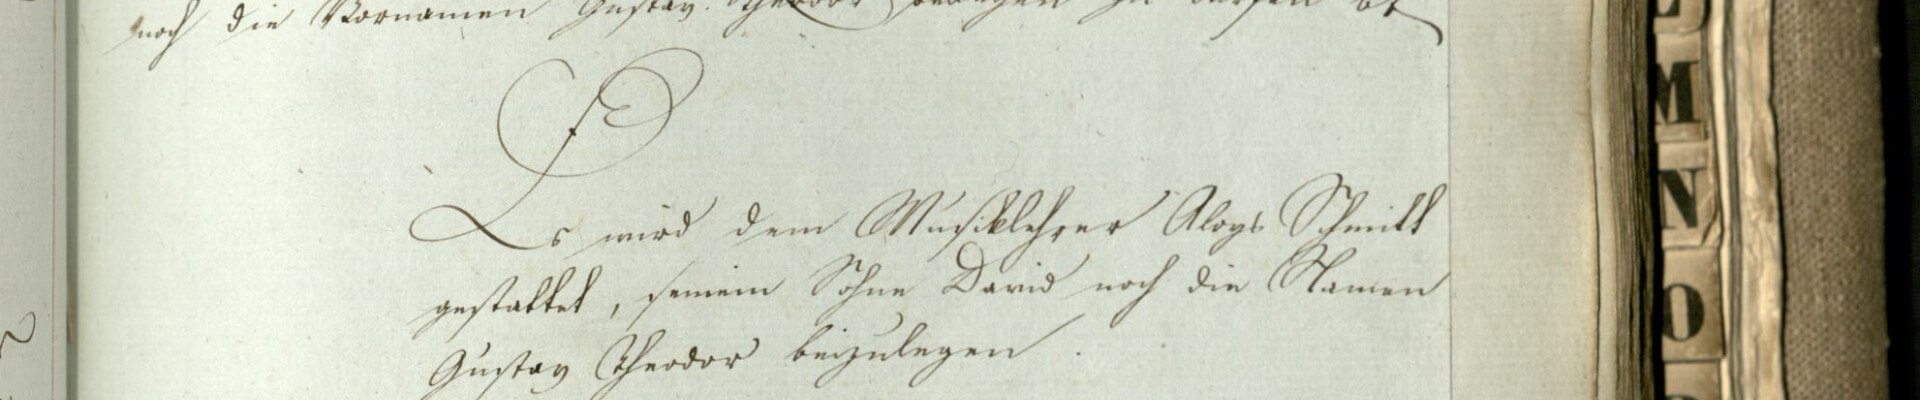 noch die Vornamen Gustav Theodor beilegen zu dürfen bt
Es wird dem Musiklehrer Aloys Schmitt
gestattet, seinem Sohne David noch die Namen
Gustav Theodor beizulegen.
M
N
O